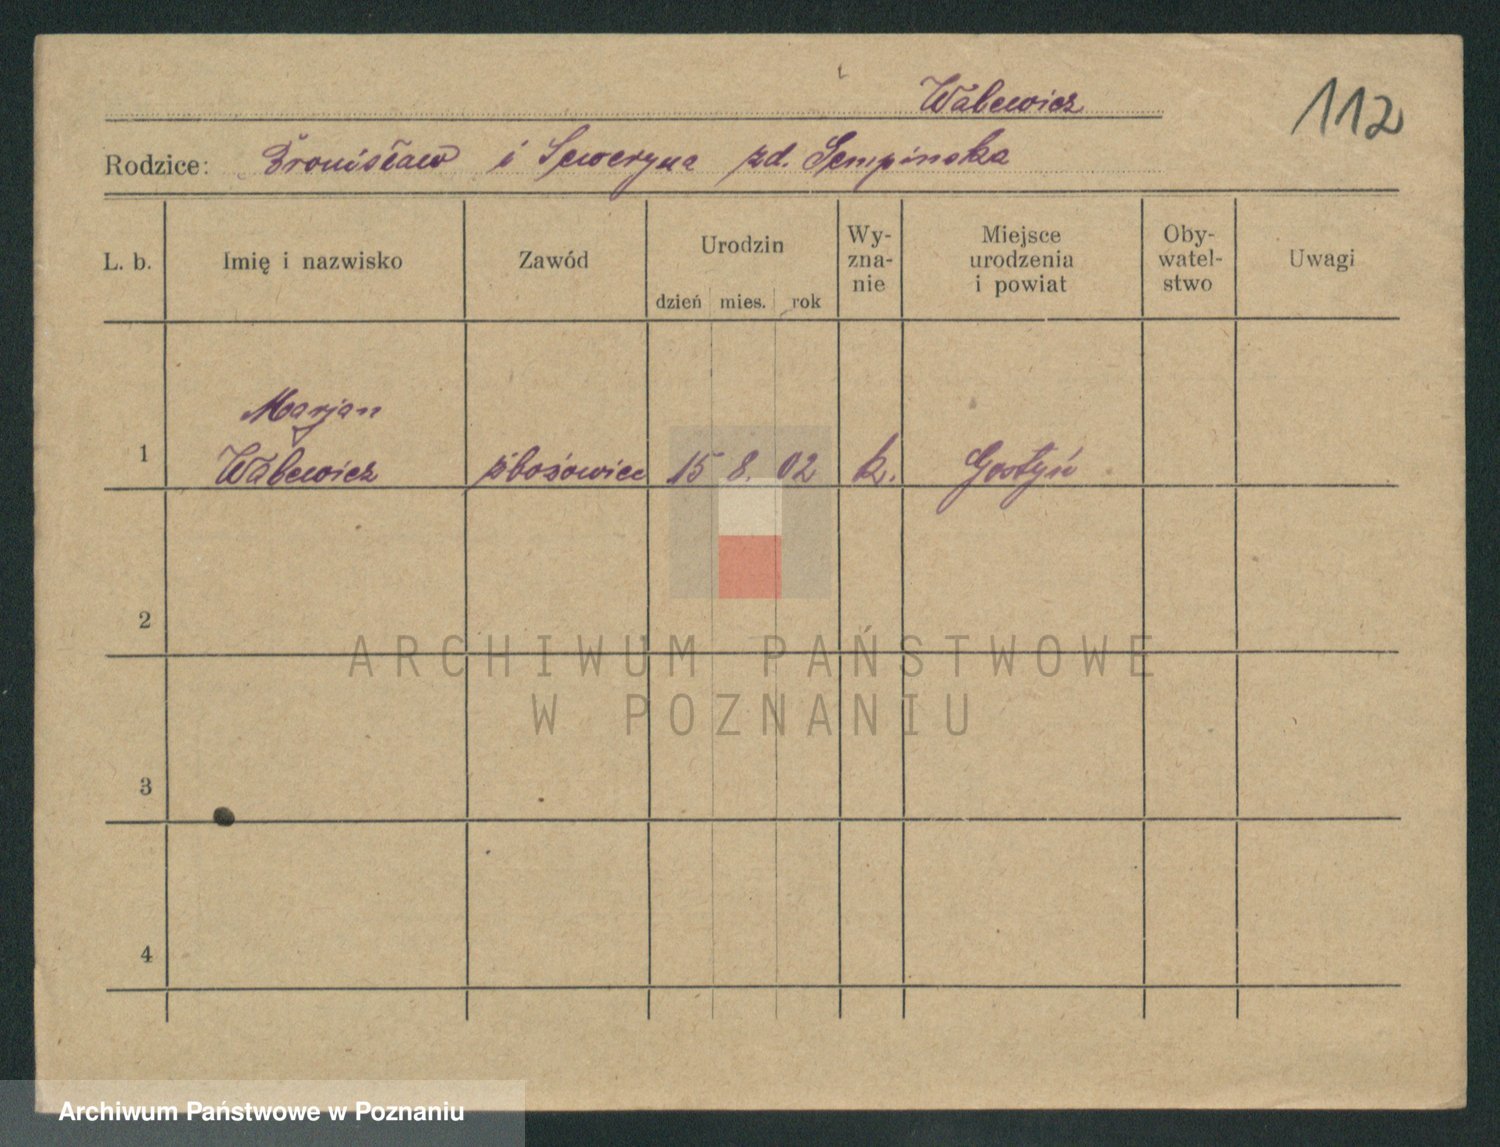 Wabewicz
112
Rodzice: Bronisław i Seweryna zd. Sempińska
L. b.
Imię i nazwisko
Zawód
Urodzin
dzień mies. rok
Wy-
zna-
nie
Miejsce
urodzenia
i powiat
Oby-
watel-
stwo
Uwagi
Marjan
1 Wabewicz zbożowiec 15 8. 02 k. Gostyń
2
ARCHIWUM PAŃSTWOWE
W POZNANIU
3
4
Archiwum Państwowe w Poznaniu